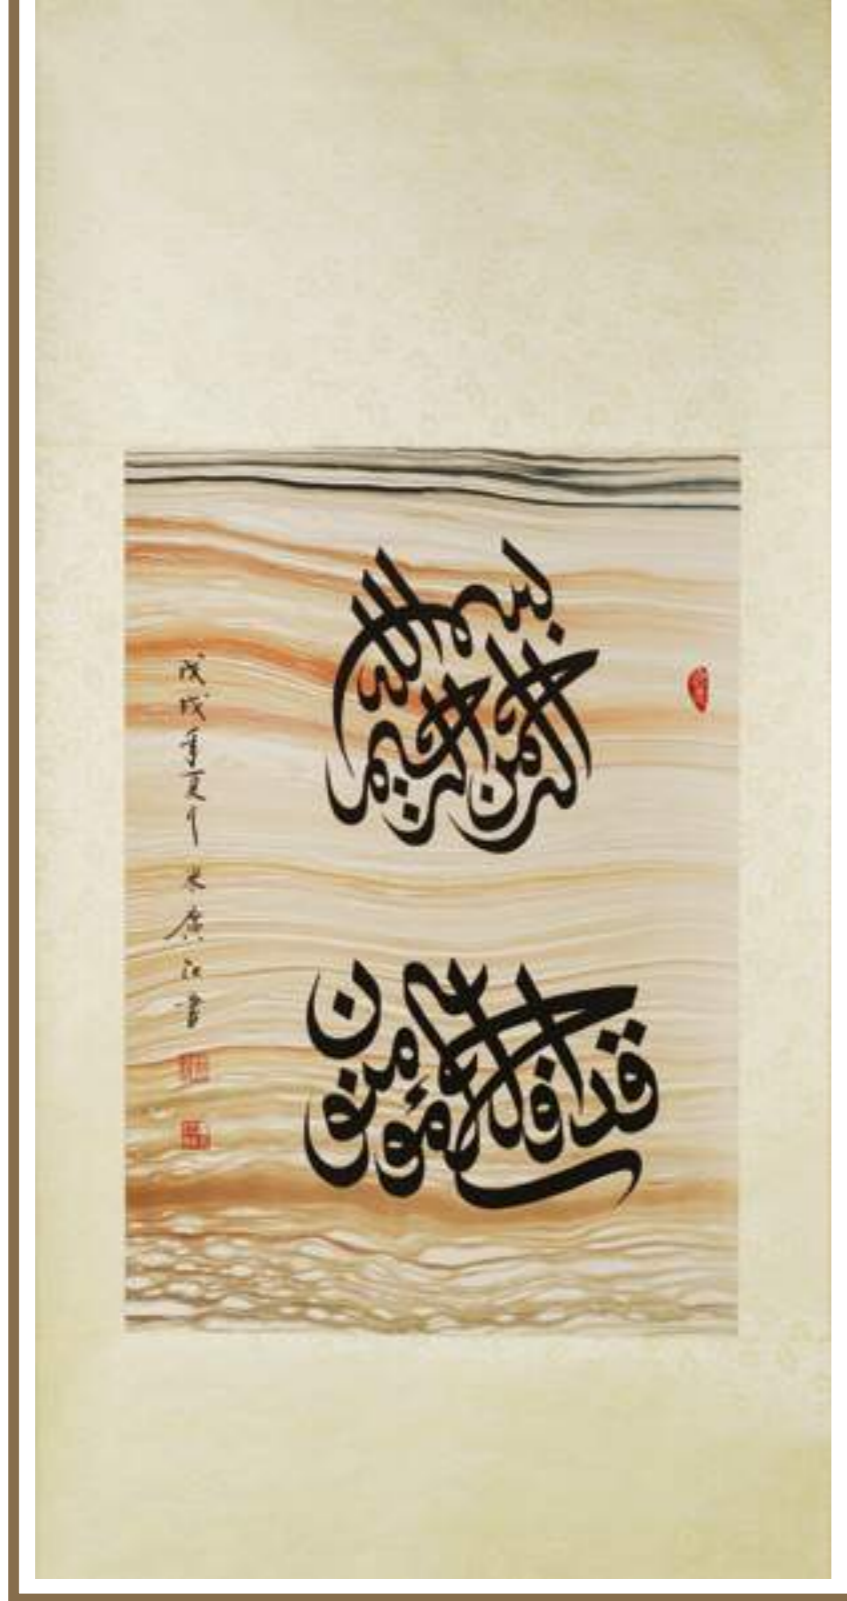 بسم الله الرحمن الرحيم
قد افلح المؤمنون
戊戌年夏月 米廣江書